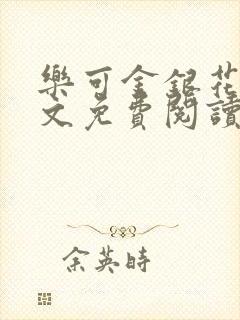 樂可金銀花
文免費閱讀
余英時